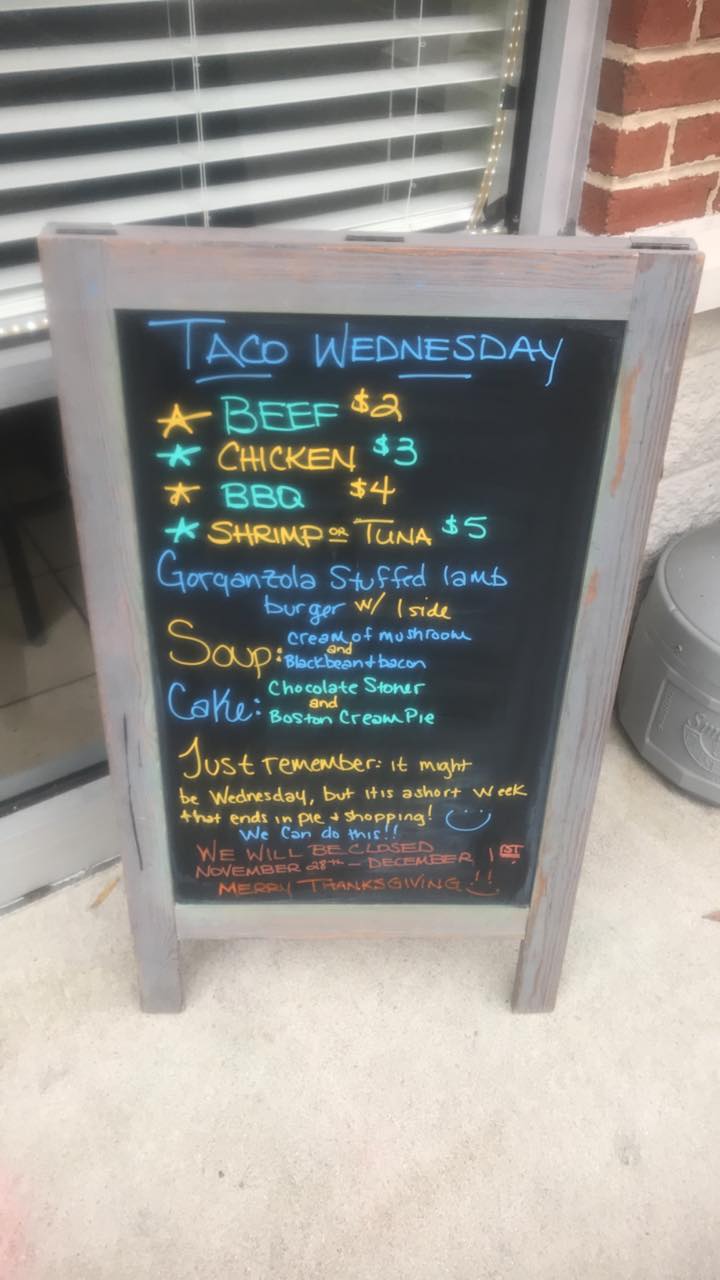 TACO WEDNESDAY
BEEF $2
CHICKEN $3
BBQ $4
SHRIMP OR TUNA $5
Gorganzola Stuffed lamb
burger w/ 1 side
Soup: cream of mushroom
and
Blackbean + bacon
Cake: Chocolate Stoner
and
Boston Cream Pie
Just remember: it might
be Wednesday, but it is a short week
that ends in pie + shopping!
We can do this!!
WE WILL BE CLOSED
NOVEMBER 28TH - DECEMBER 1ST
MERRY THANKSGIVING!!